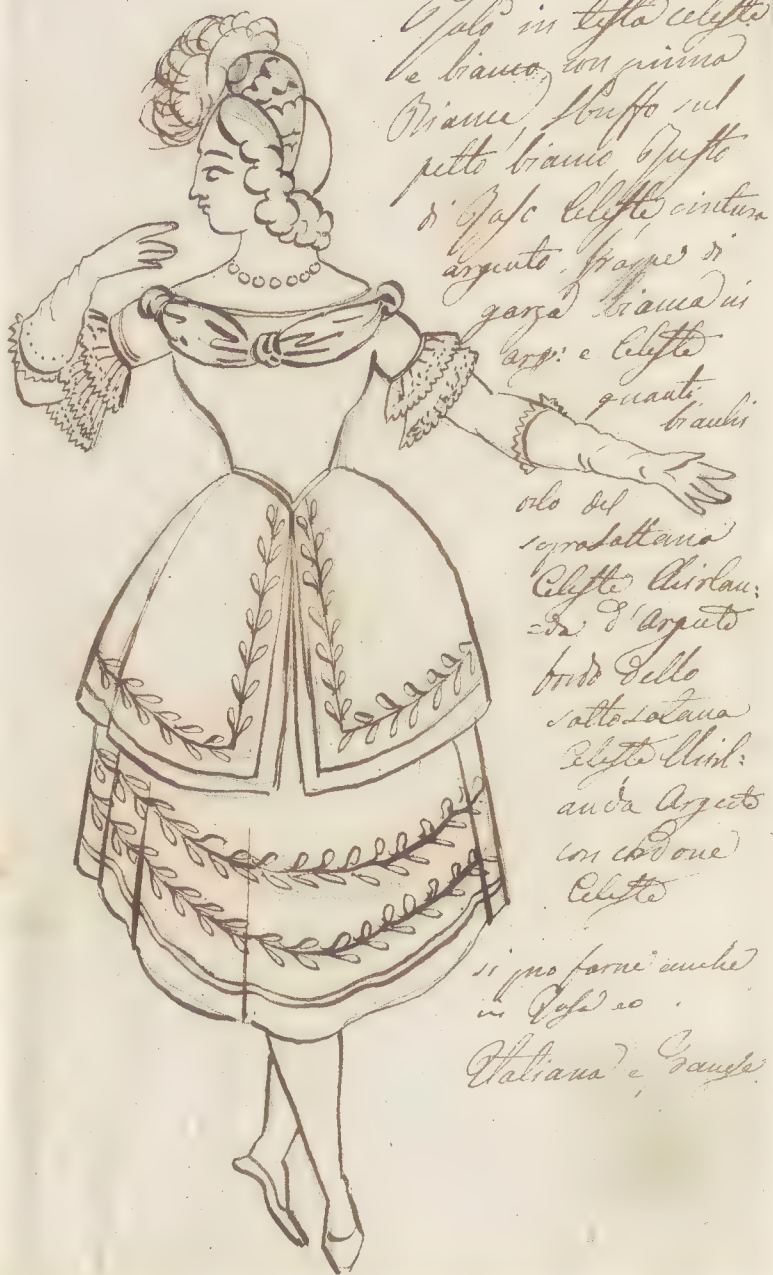 in testa celeste
e bianco, con piuma
Bianca, Sbuffo sul
petto bianco Busto
di Raso Celeste, cintura
argento, frange di
garza bianca in
arg: e Celeste
guanti
bianchi
orlo del
soprasottana
Celeste Ghirlan:
=da d'Argento
bordo dello
sottosotana
Celeste Ghirl:
anda Argento
con cordone
Celeste
si può farne anche
in Rosa
Italiana e